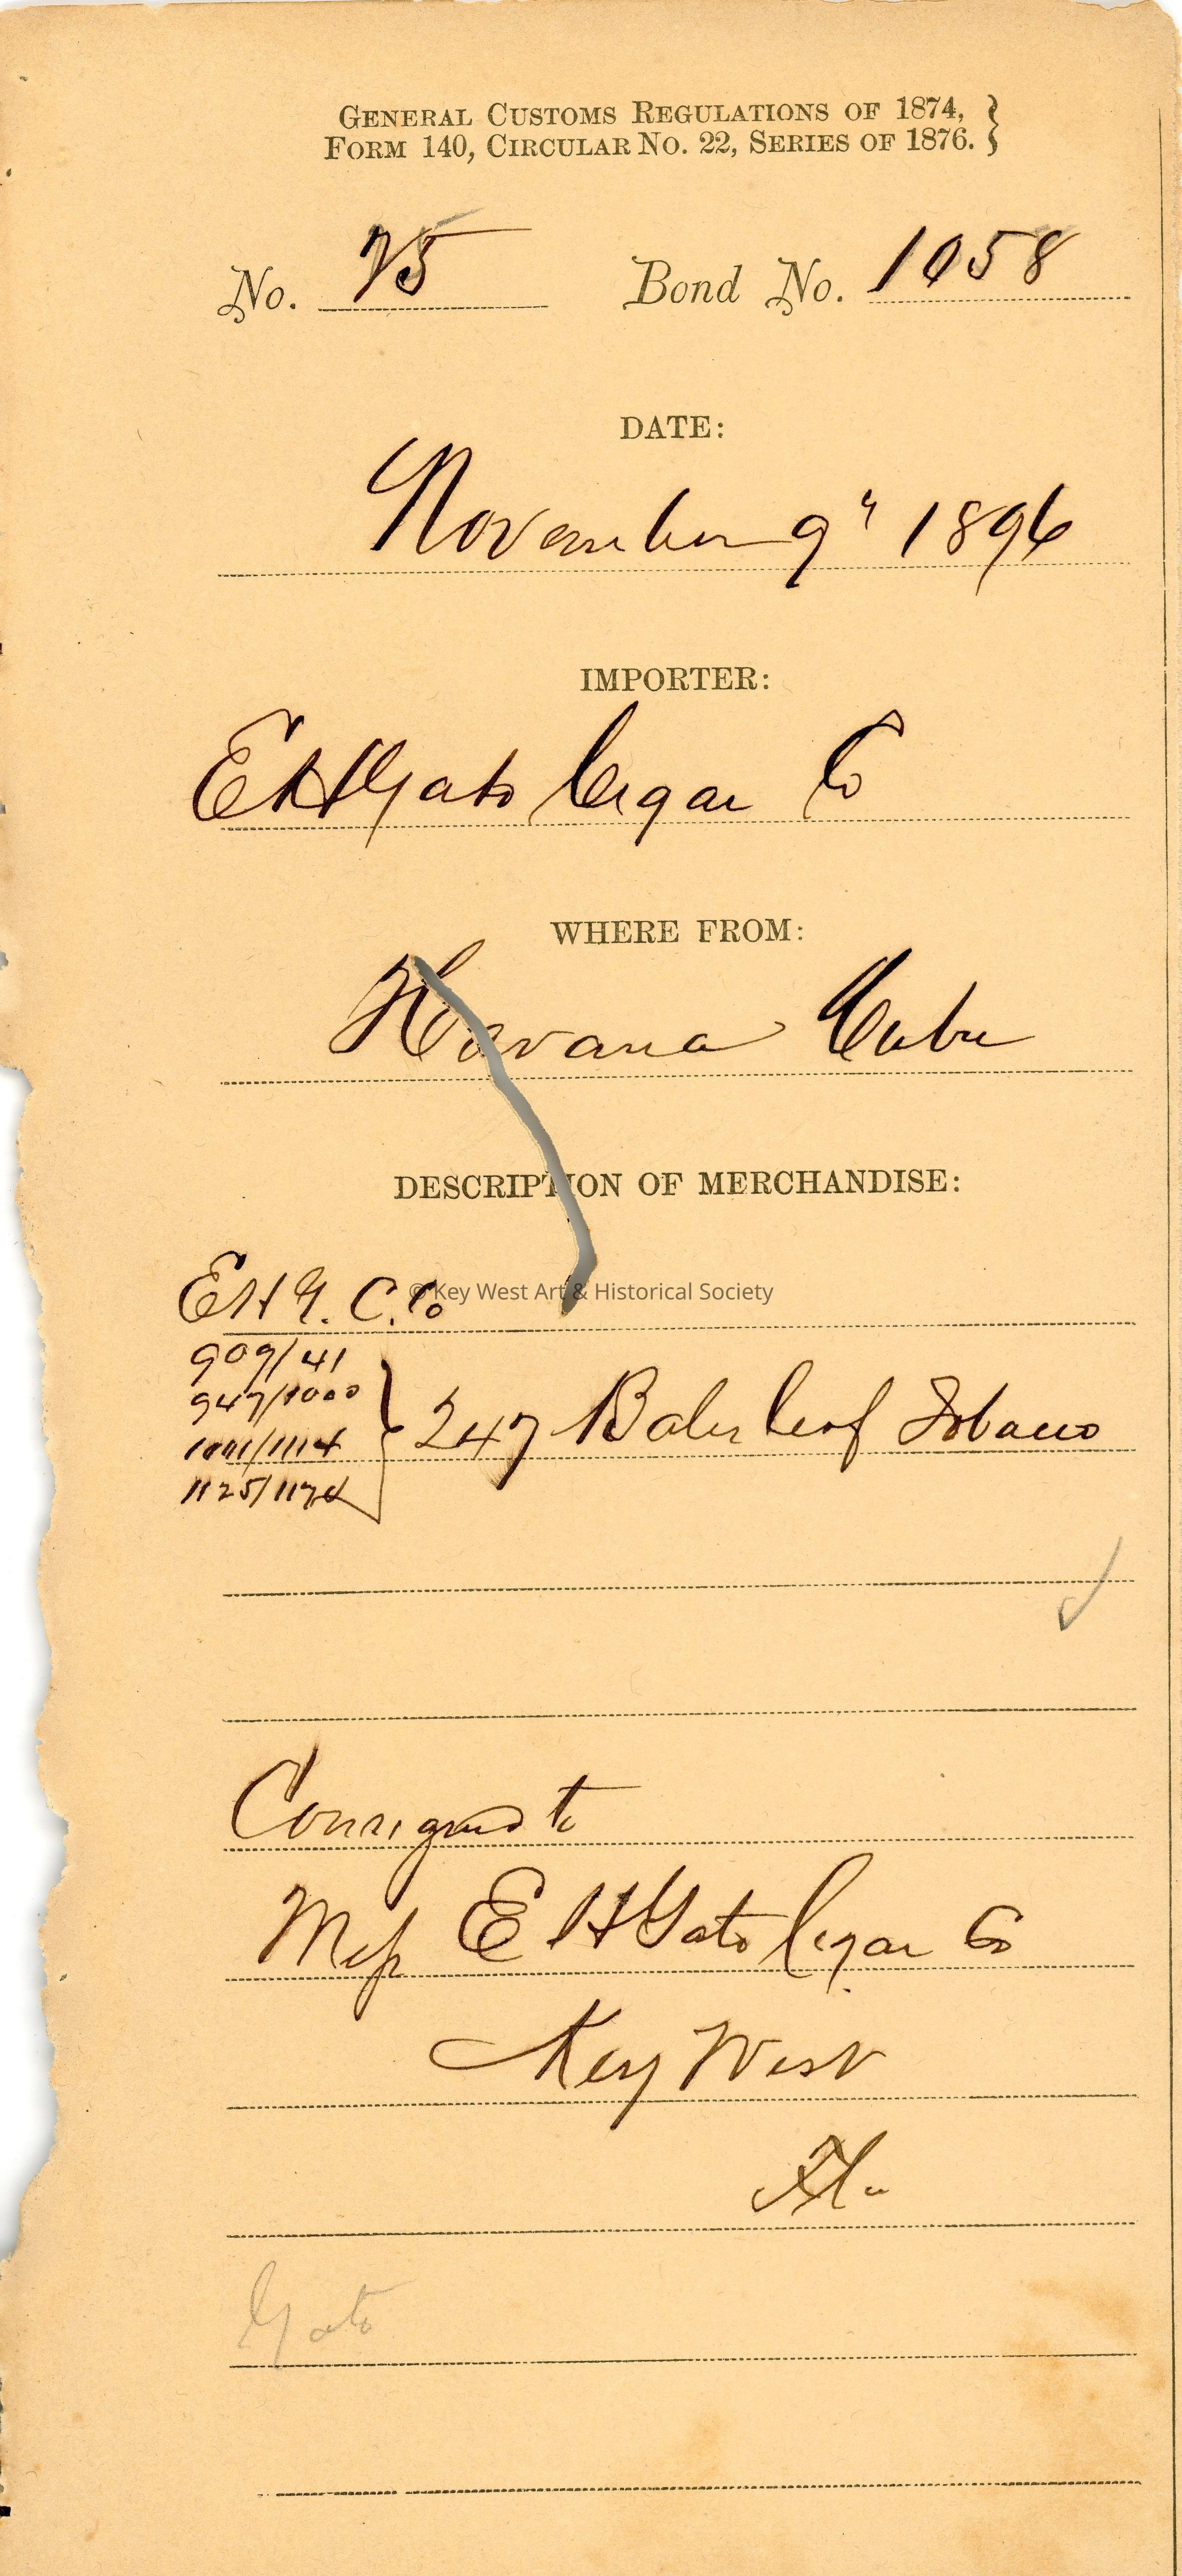 GENERAL CUSTOMS REGULATIONS OF 1874, }
FORM 140, CIRCULAR NO. 22, SERIES OF 1876. }
No. 75 Bond No. 1058
DATE:
November 9" 1896
IMPORTER:
E H Gato Cigar Co
WHERE FROM:
Havana Cuba
DESCRIPTION OF MERCHANDISE:
E H G. C. Co
© Key West Art & Historical Society
909/41
947/1000
1001/1114
1125/1174
} 247 Bales Leaf Tobacco
Consigned to
Mess E H Gato Cigar Co
Key West
Fla
Gato